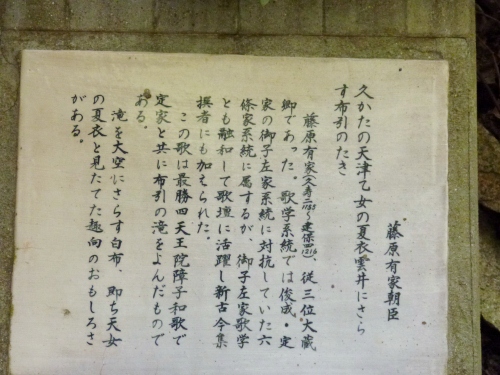 藤原有家朝臣
久かたの天津乙女の夏衣雲井にさら
す布引のたき
藤原有家(久寿二1155〜建保四1216)、従三位大蔵
卿であった。歌学系統では俊成・定
家の御子左家系統に対抗していた六
條家系統に属するが、御子左家歌学
とも融和して歌壇に活躍し新古今集
撰者にも加えられた。
この歌は最勝四天王院障子和歌で
定家と共に布引の滝をよんだもので
ある。
滝を大空にさらす白布、即ち天女
の夏衣と見たてた趣向のおもしろさ
がある。